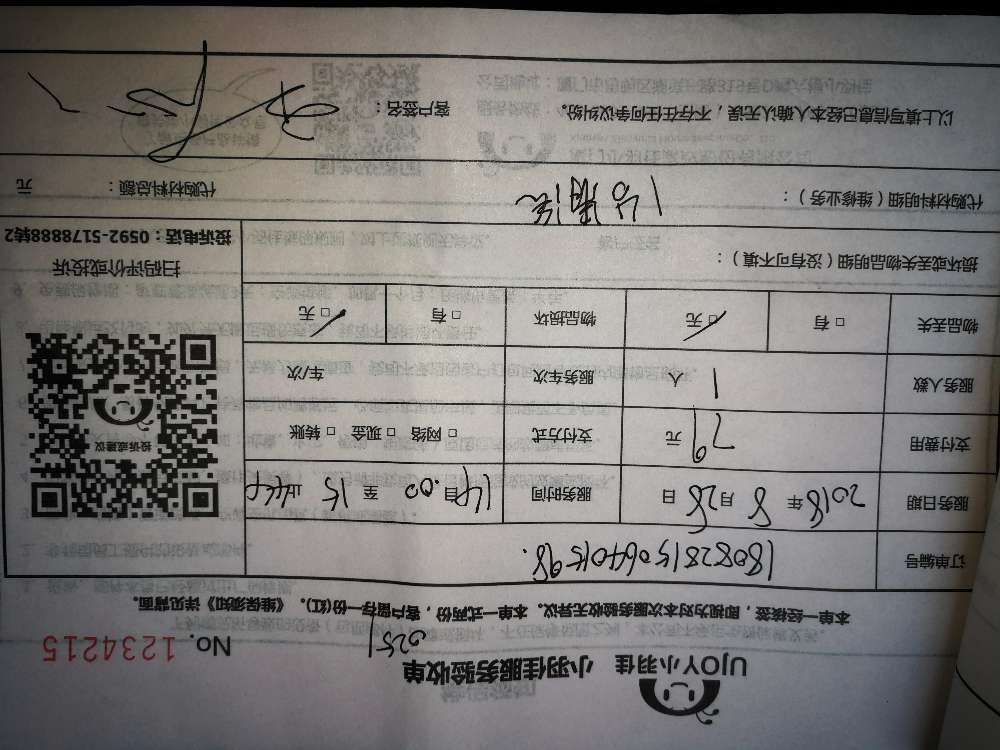 UJOY小羽佳 小羽佳服务验收单
No. 1234215
0251
本单一经接签，即视为对本次服务验收无异议。本单一式两份，客户留存一份(红)。《维保须知》详见背面。
订单编号 1808281506401598.
服务日期 2018 年 8 月 28 日 服务时间 14 自 .00 至 15 止
支付费用 79 元 支付方式 □ 网络 □ 现金 □ 转账
服务人数 1 人 服务车次 车/次
物品丢失 □ 有 □ 无 物品损坏 □ 有 □ 无
损坏或丢失物品明细（没有可不填）：
扫码评价或投诉
投诉电话：0592-5178888转2
投诉或建议
代购材料明细（维修业务）： 代购材料总额： 元
以上填写信息已经本人确认无误，不存在任何争议纠纷。 客户签名：